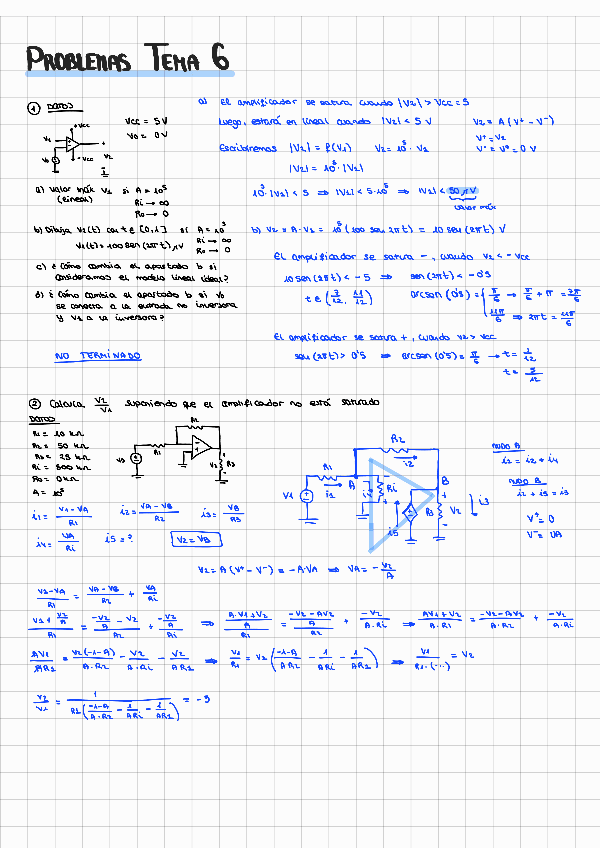 PROBLEMAS TEMA 6
① DATOS
+Vcc
V1
Vo
-Vcc
V2
Vcc = 5V
Vo = 0V
a) Valor máx V1 si A = 10⁵
(lineal)
Ri → ∞
Ro → 0
b) Dibuja V2(t) con t ∈ [0,1] si A = 10⁵
V1(t) = 100 sen(2πt) μV
Ri → ∞
Ro → 0
c) ¿Cómo cambia el apartado b si
consideramos el modelo lineal ideal?
d) ¿Cómo cambia el apartado b si Vo
se conecta a la entrada no inversora
y V1 a la inversora?
NO TERMINADO
a) El amplificador se satura cuando |V2| > Vcc = 5
Luego, estará en lineal cuando |V2| < 5 V
V2 = A (V⁺ - V⁻)
Escribiremos |V2| = f(V1)
V2 = 10⁵ · V1
V⁻ = V⁰ = 0 V
|V2| = 10⁵ · |V1|
10⁵ · |V1| < 5 ⇒ |V1| < 5·10⁻⁵ ⇒ |V1| < 50 μV
valor máx
b) V2 = A · V1 = 10⁵ (100 sen 2πt) = 10 sen(2πt) V
El amplificador se satura -, cuando V2 < -Vcc
10 sen(2πt) < -5 ⇒ sen(2πt) < -0'5
t ∈ (7/12, 11/12)
El amplificador se satura +, cuando V2 > Vcc
sen(2πt) > 0'5 ⇒ arcsen(0'5) = π/6 → t = 1/12
t = 5/12
② Calcula V2/V1 suponiendo que el amplificador no está saturado
DATOS
R1 = 10 kΩ
R2 = 50 kΩ
R3 = 25 kΩ
Ri = 500 kΩ
Ro = 0 kΩ
A = 10⁵
R2
R1
V2
R3
R2
i2
R1
i1
V1
A
Ri
B
R3
V2
i3
i5
NUDO A
i1 = i2 + i4
NUDO B
i2 + i5 = i3
V⁺ = 0
V⁻ = VA
i1 = (V1 - VA)/R1
i2 = (VA - VB)/R2
i3 = VB/R3
i4 = VA/Ri
i5 = ?
V2 = VB
V2 = A (V⁺ - V⁻) = -A·VA ⇒ VA = -V2/A
(V1 - VA)/R1 = (VA - VB)/R2 + VA/Ri
(V1 + V2/A)/R1 = (-V2/A - V2)/R2 + (-V2/A)/Ri ⇒ ((A·V1 + V2)/A)/R1 = ((-V2 - AV2)/A)/R2 + -V2/(A·Ri) ⇒ (AV1 + V2)/(A·R1) = (-V2 - AV2)/(A·R2) + -V2/(A·Ri)
AV1/AR1 = V2(-1-A)/(A·R2) - V2/(A·Ri) - V2/(AR1) ⇒ V1/R1 = V2((-1-A)/(AR2) - 1/(ARi) - 1/(AR1)) ⇒ V1/(R1·(...)) = V2
V2/V1 = 1/(R1((-1-A)/(A·R2) - 1/(ARi) - 1/(AR1))) = -5